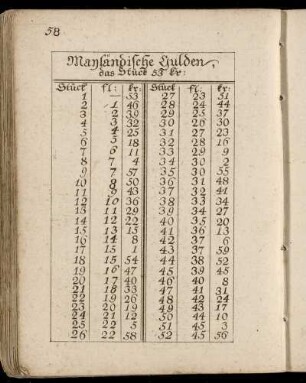 58
Mayländische Gulden,
das Stück 53 kr:
Stück fl: kr: Stück fl: kr:
1 — 53 27 23 51
2 1 46 28 24 44
3 2 39 29 25 37
4 3 32 30 26 30
5 4 25 31 27 23
6 5 18 32 28 16
7 6 11 33 29 9
8 7 4 34 30 2
9 7 57 35 30 55
10 8 50 36 31 48
11 9 43 37 32 41
12 10 36 38 33 34
13 11 29 39 34 27
14 12 22 40 35 20
15 13 15 41 36 13
16 14 8 42 37 6
17 15 1 43 37 59
18 15 54 44 38 52
19 16 47 45 39 45
20 17 40 46 40 8
21 18 33 47 41 31
22 19 26 48 42 24
23 20 19 49 43 17
24 21 12 50 44 10
25 22 5 51 45 3
26 22 58 52 45 56